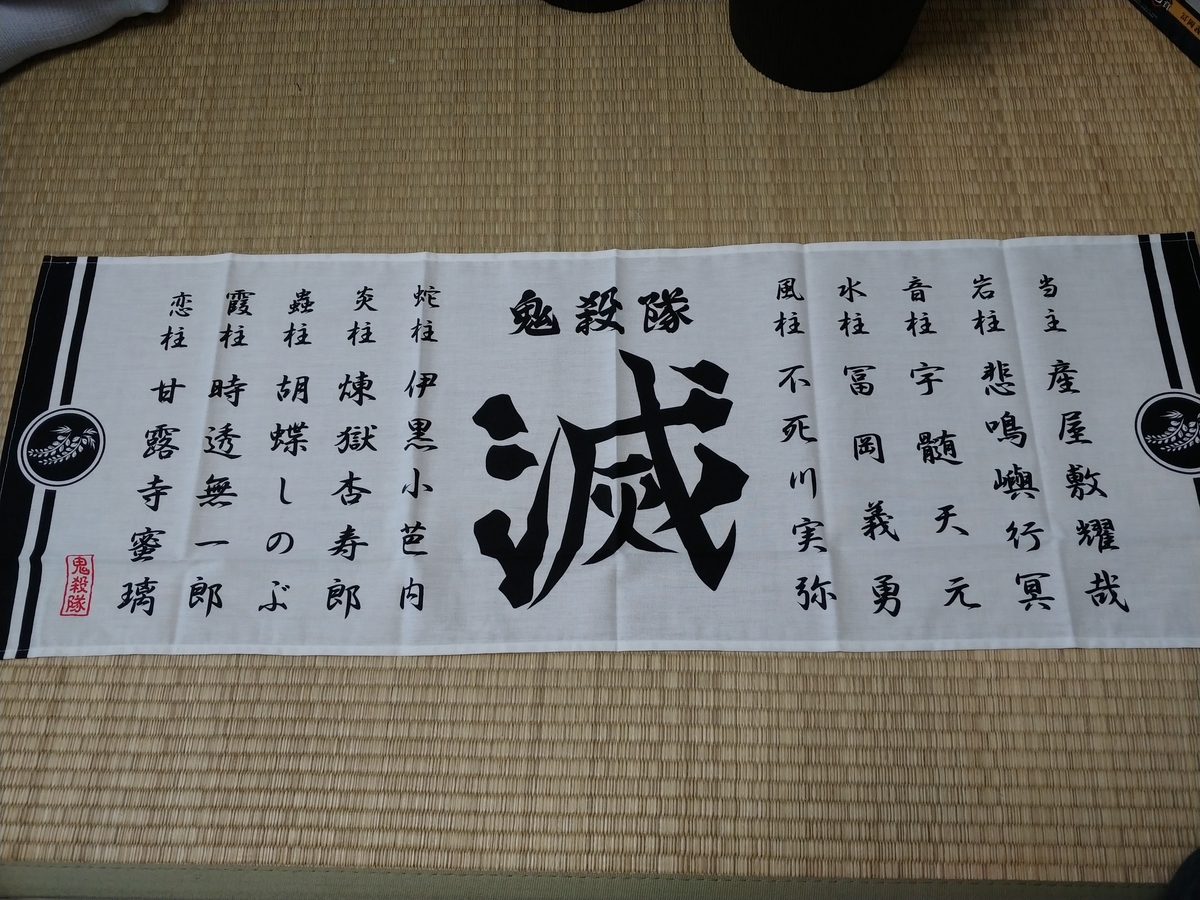 当主 産屋敷耀哉
岩柱 悲鳴嶼行冥
音柱 宇髄天元
水柱 冨岡義勇
風柱 不死川実弥
鬼殺隊
滅
蛇柱 伊黒小芭内
炎柱 煉獄杏寿郎
蟲柱 胡蝶しのぶ
霞柱 時透無一郎
恋柱 甘露寺蜜璃
鬼殺隊